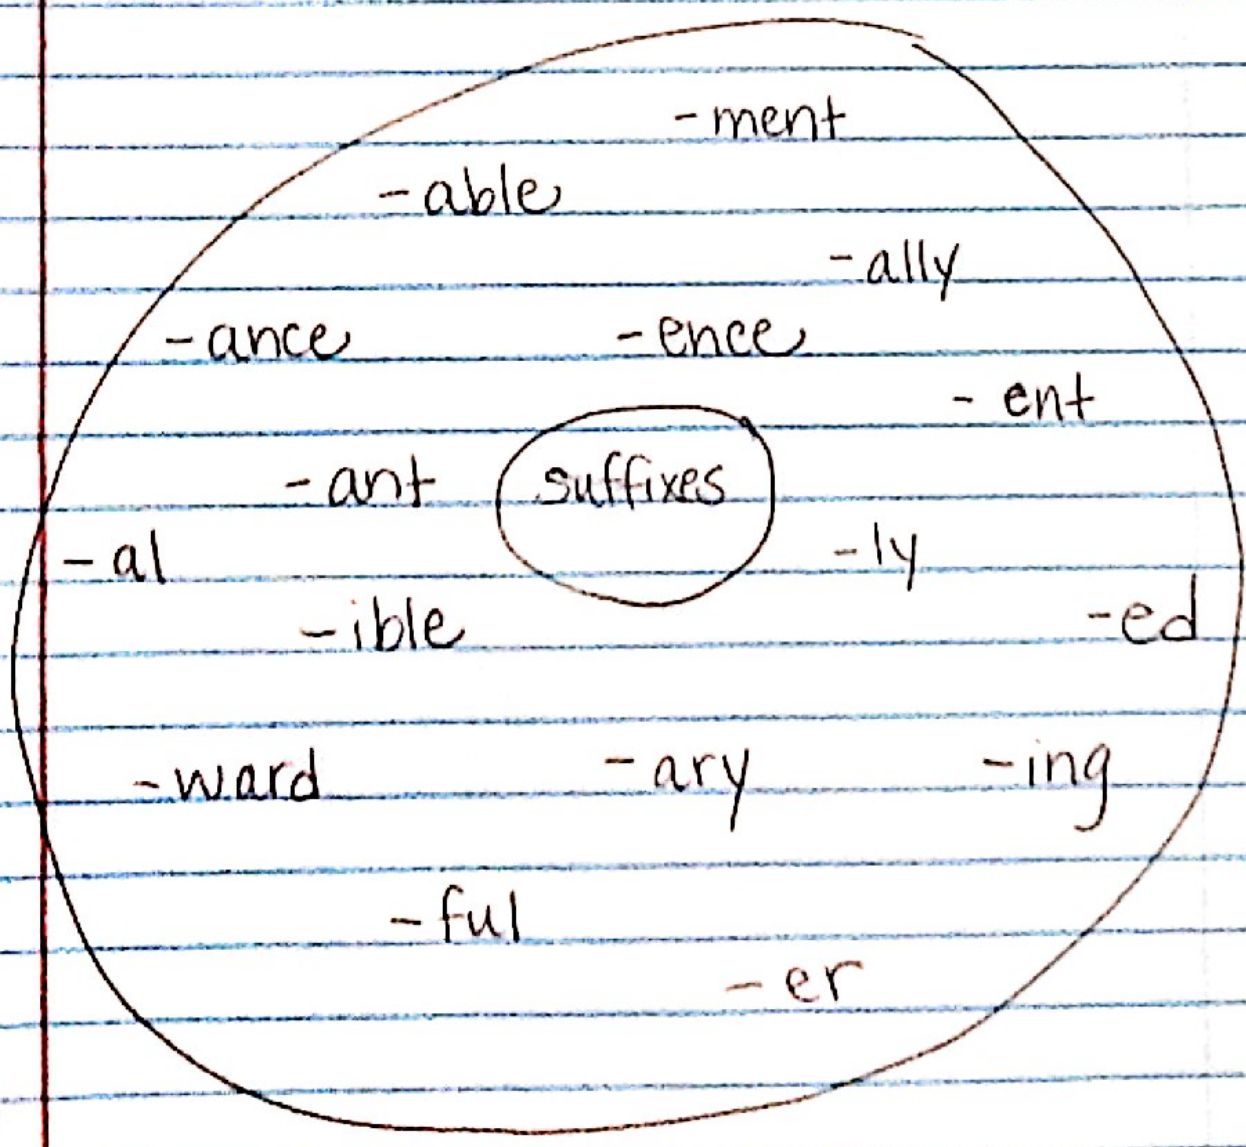 -ment
-able
-ally
-ance -ence
- ent
-ant suffixes
-al -ly
-ible -ed
-ward -ary -ing
-ful
-er